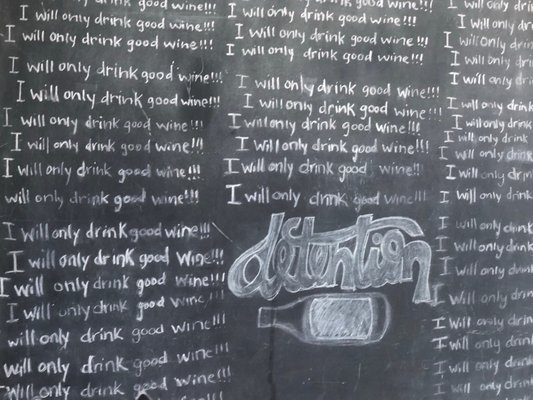 drink good wine!!!
I will only drink good wine!!!
I will only drink good wine!!!
I will only drink good wine!!!
I will only drink good wine!!!
I will only drink good wine!!!
I will only drink good wine!!!
will only drink good wine!!!
I will only drink good wine!!!
I will only drink good wine!!!
I will only drink good wine!!!
I will only drink good wine !!!
will only drink good wine !!!
will only drink good wine !!!
will only drink good wine!!!
I will only drink good wine!!!
I will only drink good wine!!!
I will only drink good wine!!!
I will only drink good wine!!!
I will only drink good wine!!!
I will only drink good wine!!!
I will only drink good wine!!!
I will only drink good wine !!
I will only drink good wine !!!
detention
I will only drin
I will only drin
I will only drin
I will only drin
I will only drin
I will only drin
I will only drin
I will only drin
I will only drink
I will only drin
I will only drin
I will only drin
I will only drin
I will only drin
I will only drin
I Will only drin
I will only drin
I will only drin
I will only drin